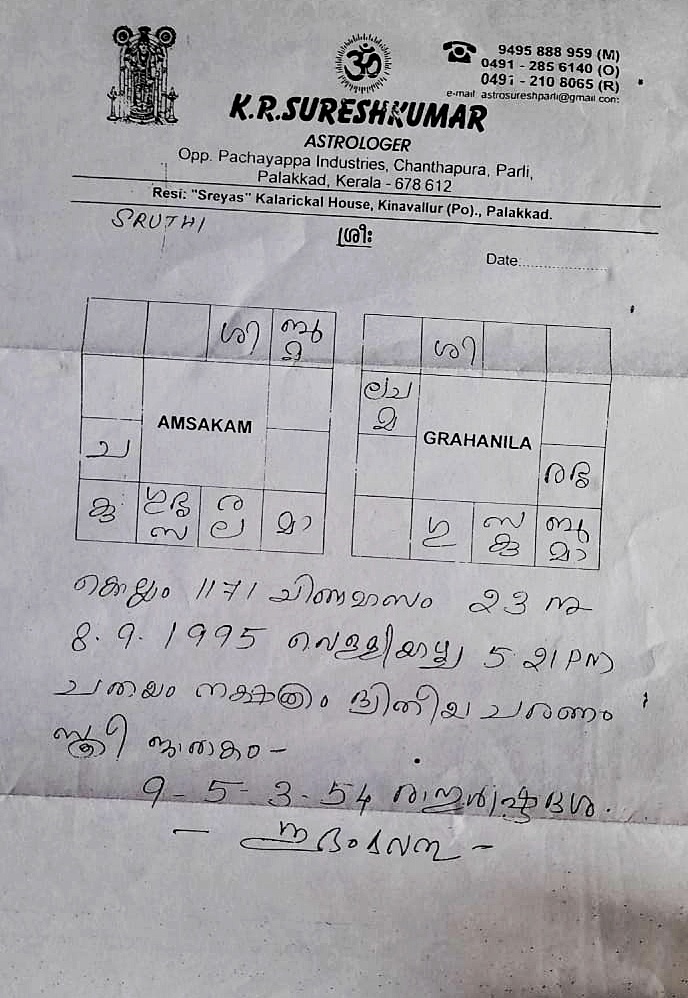 9495 888 959 (M)
0491 - 285 6140 (O)
0491 - 210 8065 (R)
e-mail: astrosureshparli@gmail.com
ॐ
K.R.SURESHKUMAR
ASTROLOGER
Opp. Pachayappa Industries, Chanthapura, Parli,
Palakkad, Kerala - 678 612
Resi: "Sreyas" Kalarickal House, Kinavallur (Po)., Palakkad.
SRUTHI
ശ്രീഃ
Date:....................
ശി ബു
AMSAKAM
ച
കു ഗു സ ര ല മാ
ശി
ല ച
GRAHANILA
ര
ഗു സ കു ബു മാ
കൊല്ലം 1171 ചിങ്ങമാസം 23 നു
8.9.1995 വെള്ളിയാഴ്ച 5.21 PM
ചതയം നക്ഷത്രം ദ്വിതീയ ചരണം
സ്ത്രീ ജാതകം -
9 - 5 - 3 - 54 രാഹുർ ദശ.